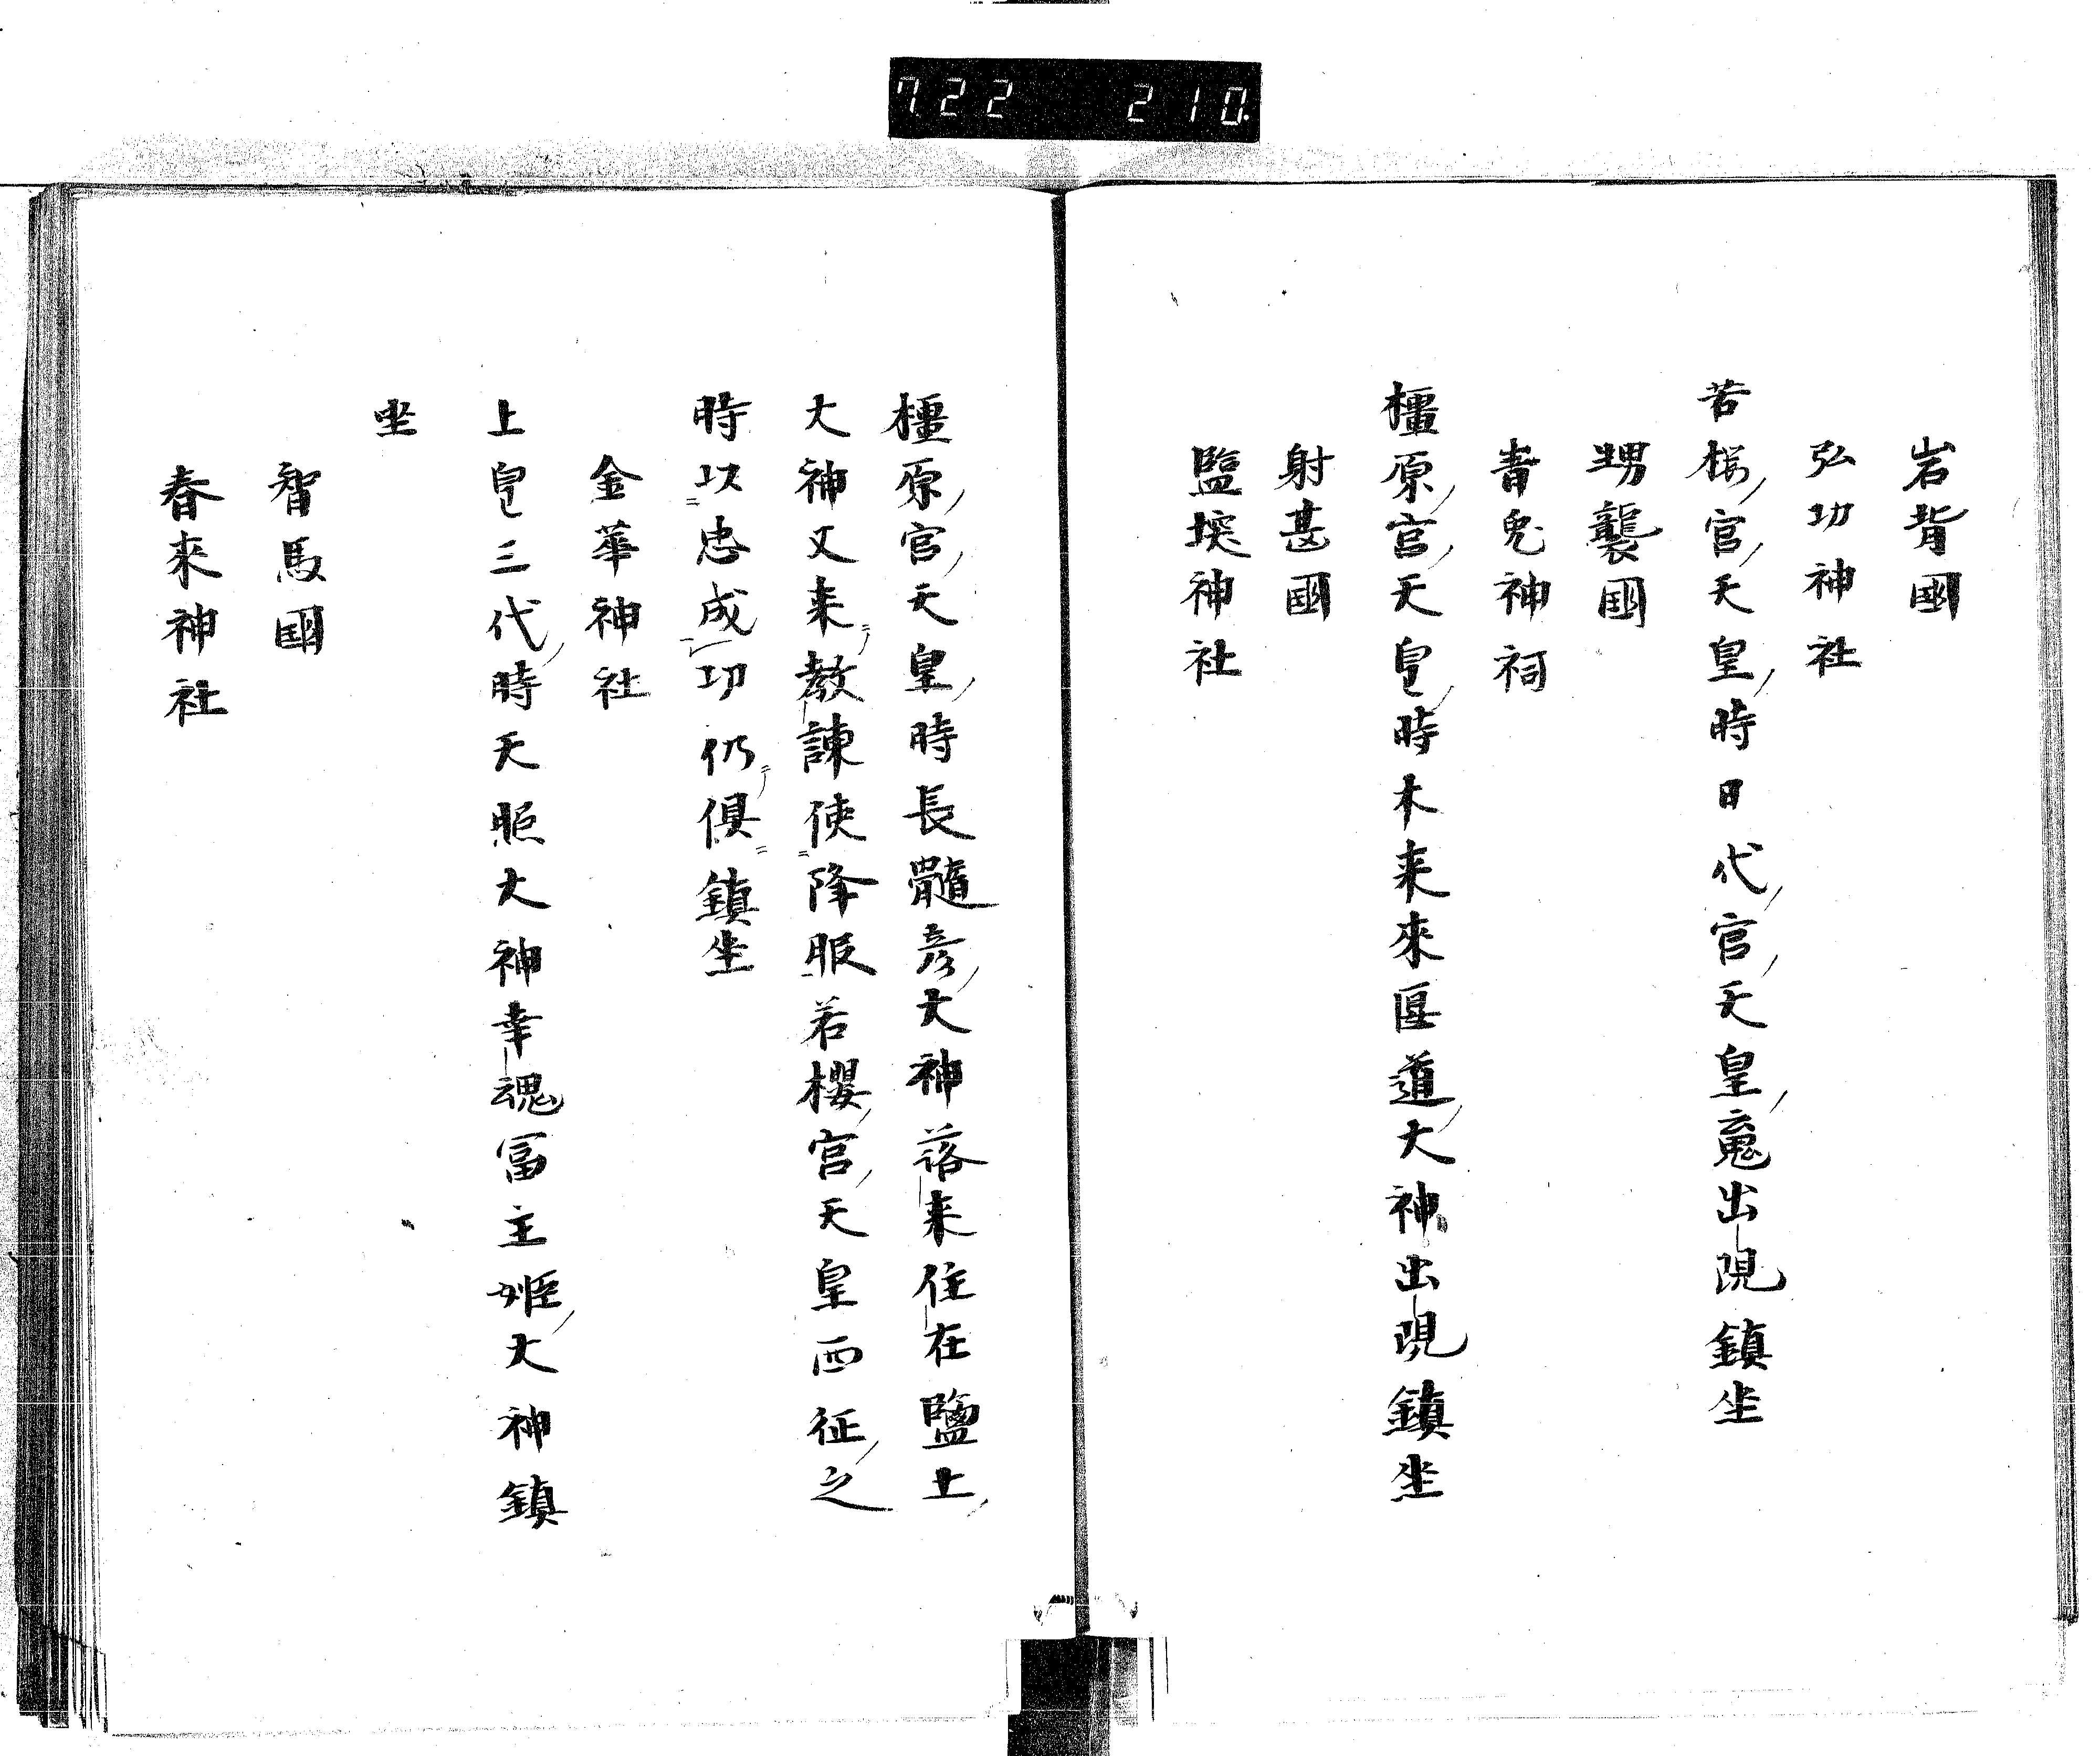 722 210.
岩背國
弘功神社
若桜宮天皇時日代宮天皇竟出現鎮坐
甥襲國
神祠
橿原宮天皇時木来來医道大神出現鎮坐
射甚國
神社
橿原宮天皇時長髓彦大神落来住在鹽土
大神又来教諫使降服若櫻宮天皇西征之
時以忠成功仍俱鎮坐
金華神社
上皇三代時天照大神幸魂冨主姫大神鎮
坐
智馬國
春來神社